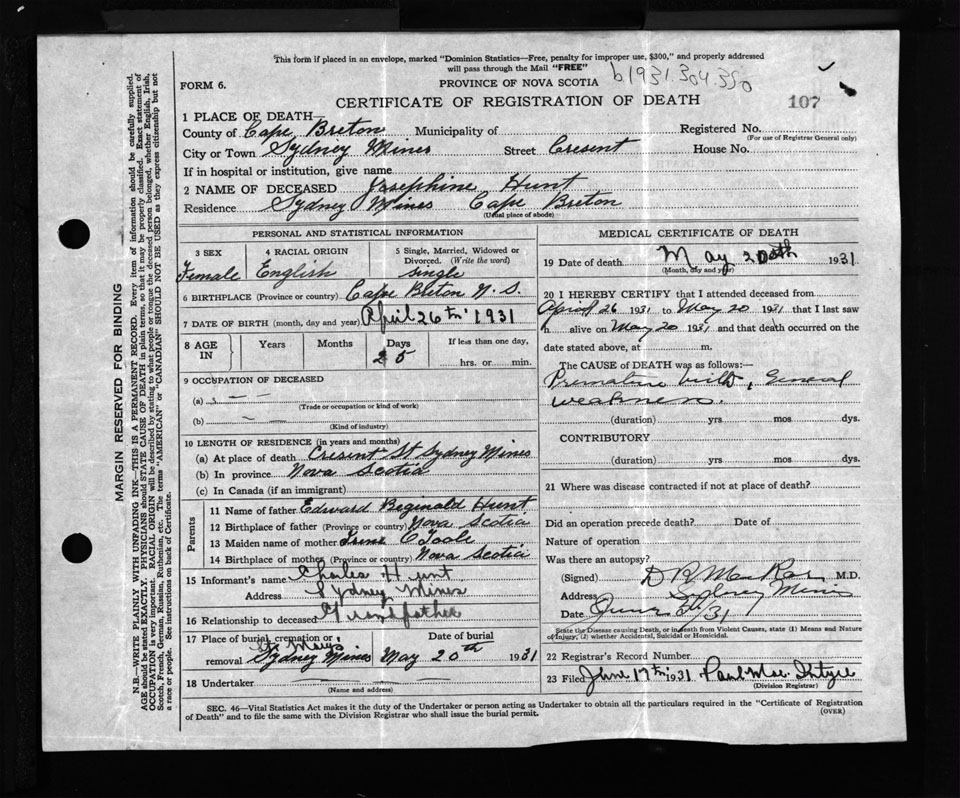 This form if placed in an envelope, marked "Dominion Statistics—Free, penalty for improper use, $300," and properly addressed
will pass through the Mail "FREE"
b1931.304.350
FORM 6.
PROVINCE OF NOVA SCOTIA
CERTIFICATE OF REGISTRATION OF DEATH
107
1 PLACE OF DEATH—
County of Cape Breton Municipality of Registered No.
(For use of Registrar General only)
City or Town Sydney Mines Street Cresent House No.
If in hospital or institution, give name
2 NAME OF DECEASED Josephine Hunt
Residence Sydney Mines Cape Breton
(Usual place of abode)
PERSONAL AND STATISTICAL INFORMATION
3 SEX 4 RACIAL ORIGIN 5 Single, Married, Widowed or
Divorced. (Write the word)
Female English single
6 BIRTHPLACE (Province or country) Cape Breton N. S.
7 DATE OF BIRTH (month, day and year) April 26th 1931
8 AGE IN Years Months Days If less than one day,
25 hrs. or min.
9 OCCUPATION OF DECEASED
(a) — —
(Trade or occupation or kind of work)
(b) —
(Kind of industry)
10 LENGTH OF RESIDENCE (in years and months)
(a) At place of death Cresent St Sydney Mines
(b) In province Nova Scotia
(c) In Canada (if an immigrant)
Parents
11 Name of father Edward Reginald Hunt
12 Birthplace of father (Province or country) Nova Scotia
13 Maiden name of mother O'Toole
14 Birthplace of mother (Province or country) Nova Scotia
15 Informant's name Charles Hunt
Address Sydney Mines
16 Relationship to deceased Grandfather
17 Place of burial, cremation or Date of burial
St Mays
removal Sydney Mines May 20th 1931
18 Undertaker — — —
(Name and address)
MEDICAL CERTIFICATE OF DEATH
19 Date of death May 20th 1931
(Month, day and year)
20 I HEREBY CERTIFY that I attended deceased from
April 26 1931 to May 20 1931 that I last saw
h alive on May 20 1931 and that death occurred on the
date stated above, at m.
The CAUSE OF DEATH was as follows:—
Premature birth, General
weakness.
(duration) yrs. mos dys.
CONTRIBUTORY
(duration) yrs. mos dys.
21 Where was disease contracted if not at place of death?
Did an operation precede death? Date of
Nature of operation
Was there an autopsy?
(Signed) D R MacRae M.D.
Address Sydney Mines
Date June /31
State the Disease causing Death, or in death from Violent Causes, state (1) Means and Nature
of Injury, (2) whether Accidental, Suicidal or Homicidal.
22 Registrar's Record Number
23 Filed June 17th 1931 Paul Mac Intyre
(Division Registrar)
SEC. 46—Vital Statistics Act makes it the duty of the Undertaker or person acting as Undertaker to obtain all the particulars required in the "Certificate of Registration
of Death" and to file the same with the Division Registrar who shall issue the burial permit.
(OVER)
MARGIN RESERVED FOR BINDING
N.B.—WRITE PLAINLY WITH UNFADING INK—THIS IS A PERMANENT RECORD. Every item of information should be carefully supplied.
AGE should be stated EXACTLY. PHYSICIANS should STATE CAUSE OF DEATH in plain terms, so that it may be properly classified. Exact statement of
OCCUPATION is very important. RACIAL ORIGIN will be described by stating to what people or tongue the deceased person belonged, whether English, Irish,
Scotch, French, German, Russian, Ruthenian, etc. The terms "AMERICAN" or "CANADIAN" SHOULD NOT BE USED as they express citizenship but not
a race or people. See instructions on back of Certificate.